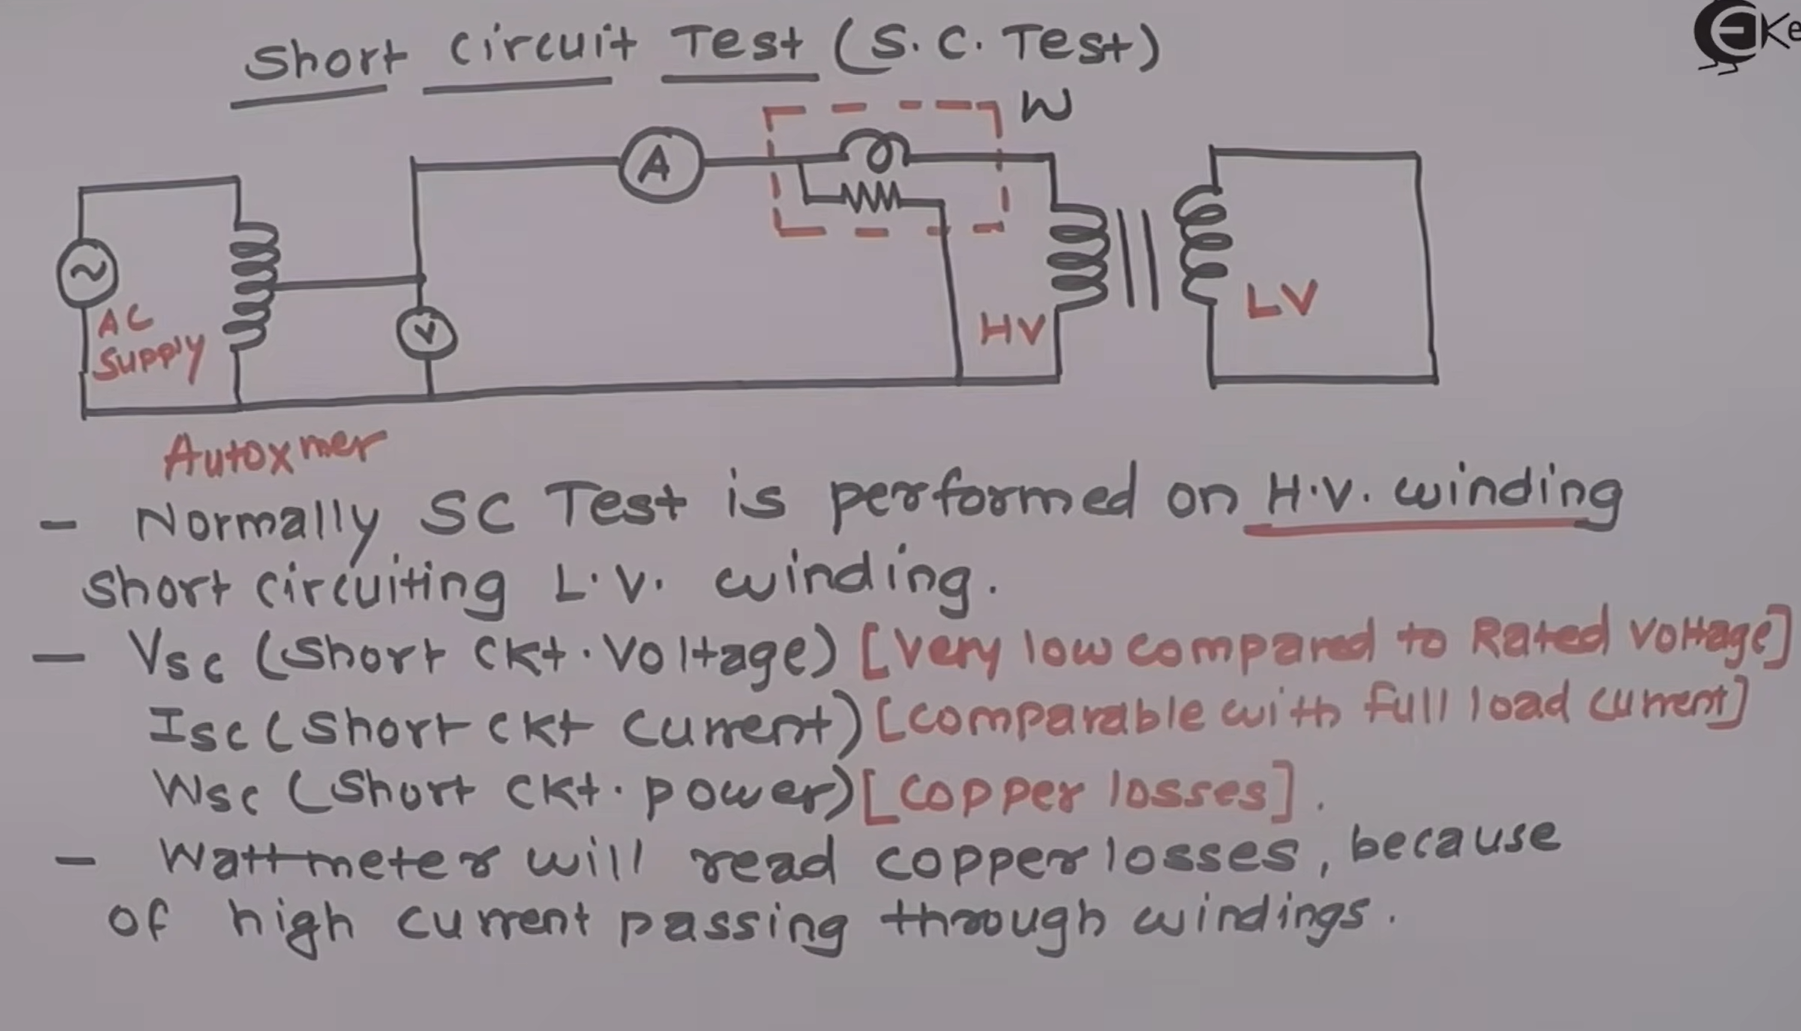 Short Circuit Test (S.C. Test)
Ke
W
A
~
V
AC
Supply
HV
LV
Autoxmer
- Normally SC Test is performed on H.V. winding
short circuiting L.V. winding.
- Vsc (short ckt. Voltage) [very low compared to Rated voltage]
Isc (short ckt current) [comparable with full load current]
Wsc (short ckt. power) [copper losses].
- Wattmeter will read copper losses, because
of high current passing through windings.